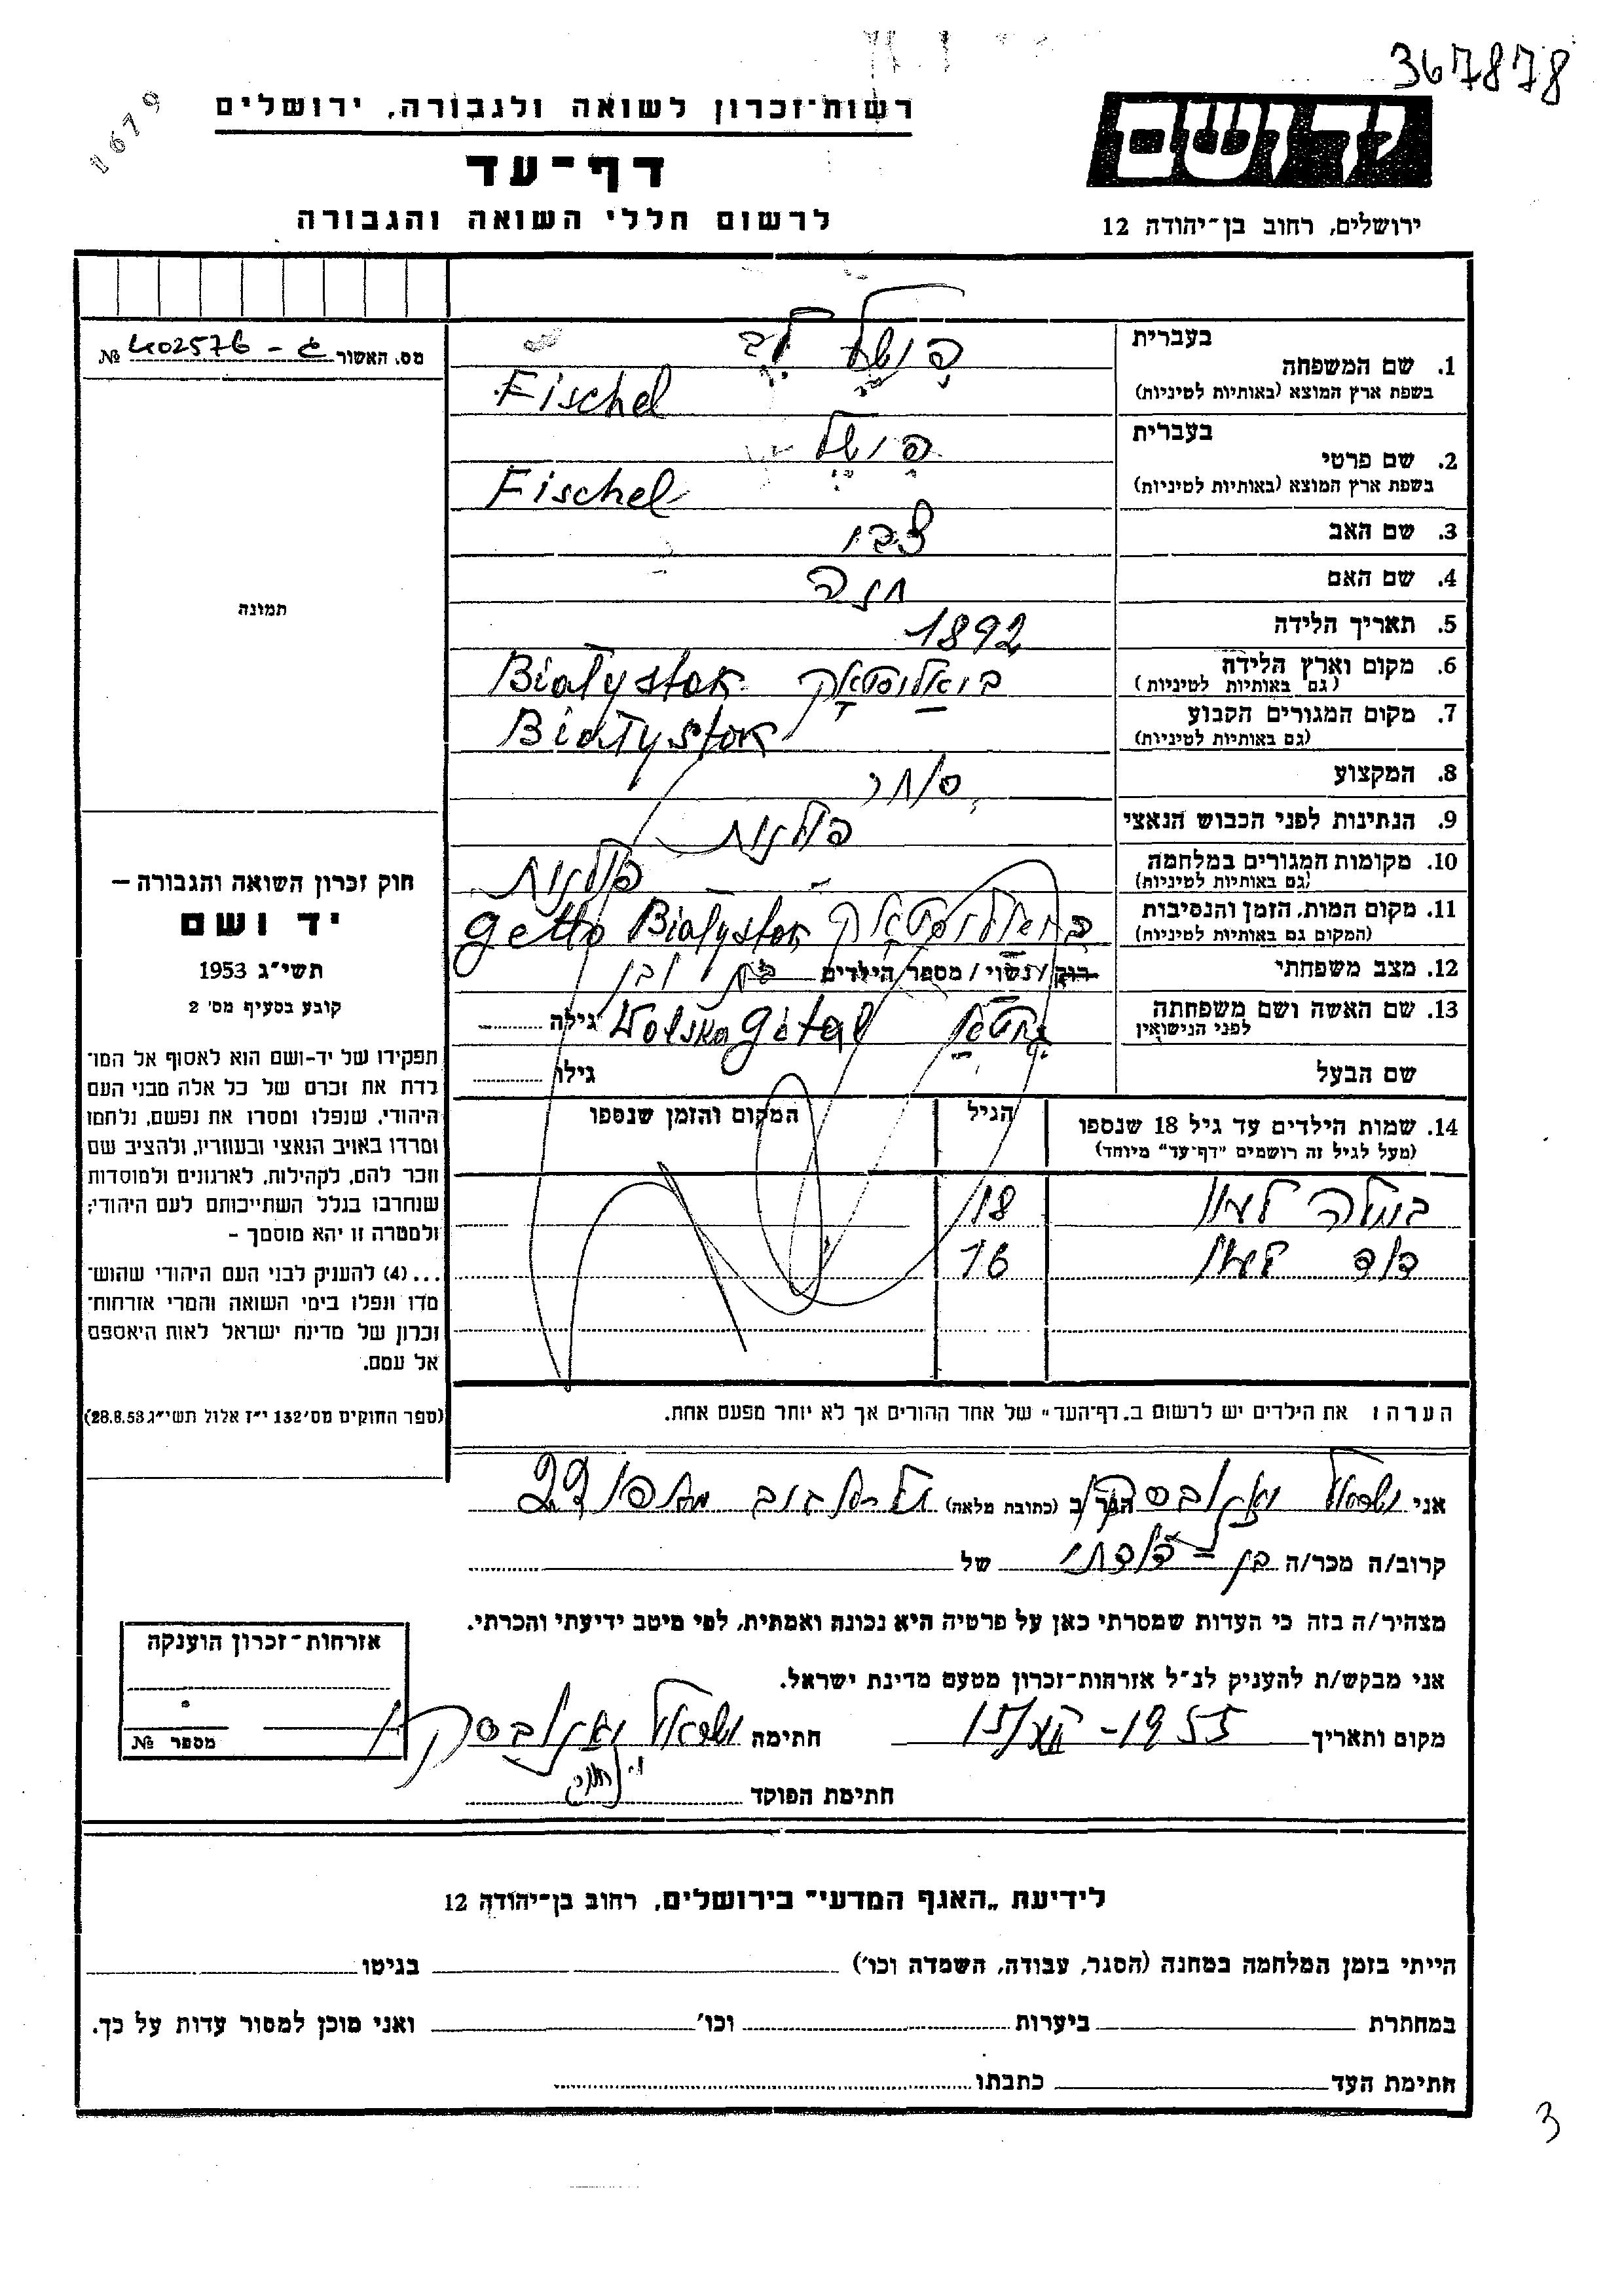 367878
1679
רשות־זכרון לשואה ולגבורה, ירושלים
דף־עד
לרשום חללי השואה והגבורה
ידושם
ירושלים, רחוב בן־יהודה 12
מס. האשור 402576 №
1. שם המשפחה
בעברית פישל
בשפת ארץ המוצא (באותיות לטיניות) Fischel
2. שם פרטי
בעברית פישל
בשפת ארץ המוצא (באותיות לטיניות) Fischel
3. שם האב צבי
4. שם האם חנה
5. תאריך הלידה 1892
6. מקום וארץ הלידה ביאליסטאק Białystok
(גם באותיות לטיניות)
7. מקום המגורים הקבוע Białystok
(גם באותיות לטיניות)
8. המקצוע סוחר
9. הנתינות לפני הכבוש הנאצי פולנית
10. מקומות המגורים במלחמה
(גם באותיות לטיניות)
11. מקום המות, הזמן והנסיבות ביאליסטאק getto Białystok
(המקום גם באותיות לטיניות)
12. מצב משפחתי רוק/נשוי/ מספר הילדים בת ובן
13. שם האשה ושם משפחתה Wolska גילה
לפני הנישואין
שם הבעל גילו
14. שמות הילדים עד גיל 18 שנספו הגיל המקום והזמן שנספו
(מעל לגיל זה רושמים "דף־עד" מיוחד)
18
דוד 16
הערה: את הילדים יש לרשום ב„דף־העד" של אחד ההורים אך לא יותר מפעם אחת.
תמונה
חוק זכרון השואה והגבורה —
יד ושם
תשי"ג 1953
קובע בסעיף מס' 2
תפקידו של יד-ושם הוא לאסוף אל המו־
לדת את זכרם של כל אלה מבני העם
היהודי, שנפלו ומסרו את נפשם, נלחמו
ומרדו באויב הנאצי ובעוזריו, ולהציב שם
וזכר להם, לקהילות, לארגונים ולמוסדות
שנחרבו בגלל השתייכותם לעם היהודי;
ולמטרה זו יהא מוסמך —
...(4) להעניק לבני העם היהודי שהוש־
מדו ונפלו בימי השואה והמרי אזרחות־
זכרון של מדינת ישראל לאות היאספם
אל עמם.
(ספר החוקים מס' 132 י"ז אלול תשי"ג 28.8.53)
אני ישראל הגר ב (כתובת מלאה) תל־אביב 22
קרוב/ה מכר/ה בן־דודתי של
מצהיר/ה בזה כי העדות שמסרתי כאן על פרטיה היא נכונה ואמתית, לפי מיטב ידיעתי והכרתי.
אני מבקש/ת להעניק לנ"ל אזרחות־זכרון מטעם מדינת ישראל.
מקום ותאריך 1955 חתימה ישראל
חתימת הפוקד
אזרחות־זכרון הוענקה
מספר №
לידיעת „האגף המדעי" בירושלים, רחוב בן־יהודה 12
הייתי בזמן המלחמה במחנה (הסגר, עבודה, השמדה וכו') בגיטו
במחתרת ביערות וכו' ואני מוכן למסור עדות על כך.
חתימת העד כתבתו
3